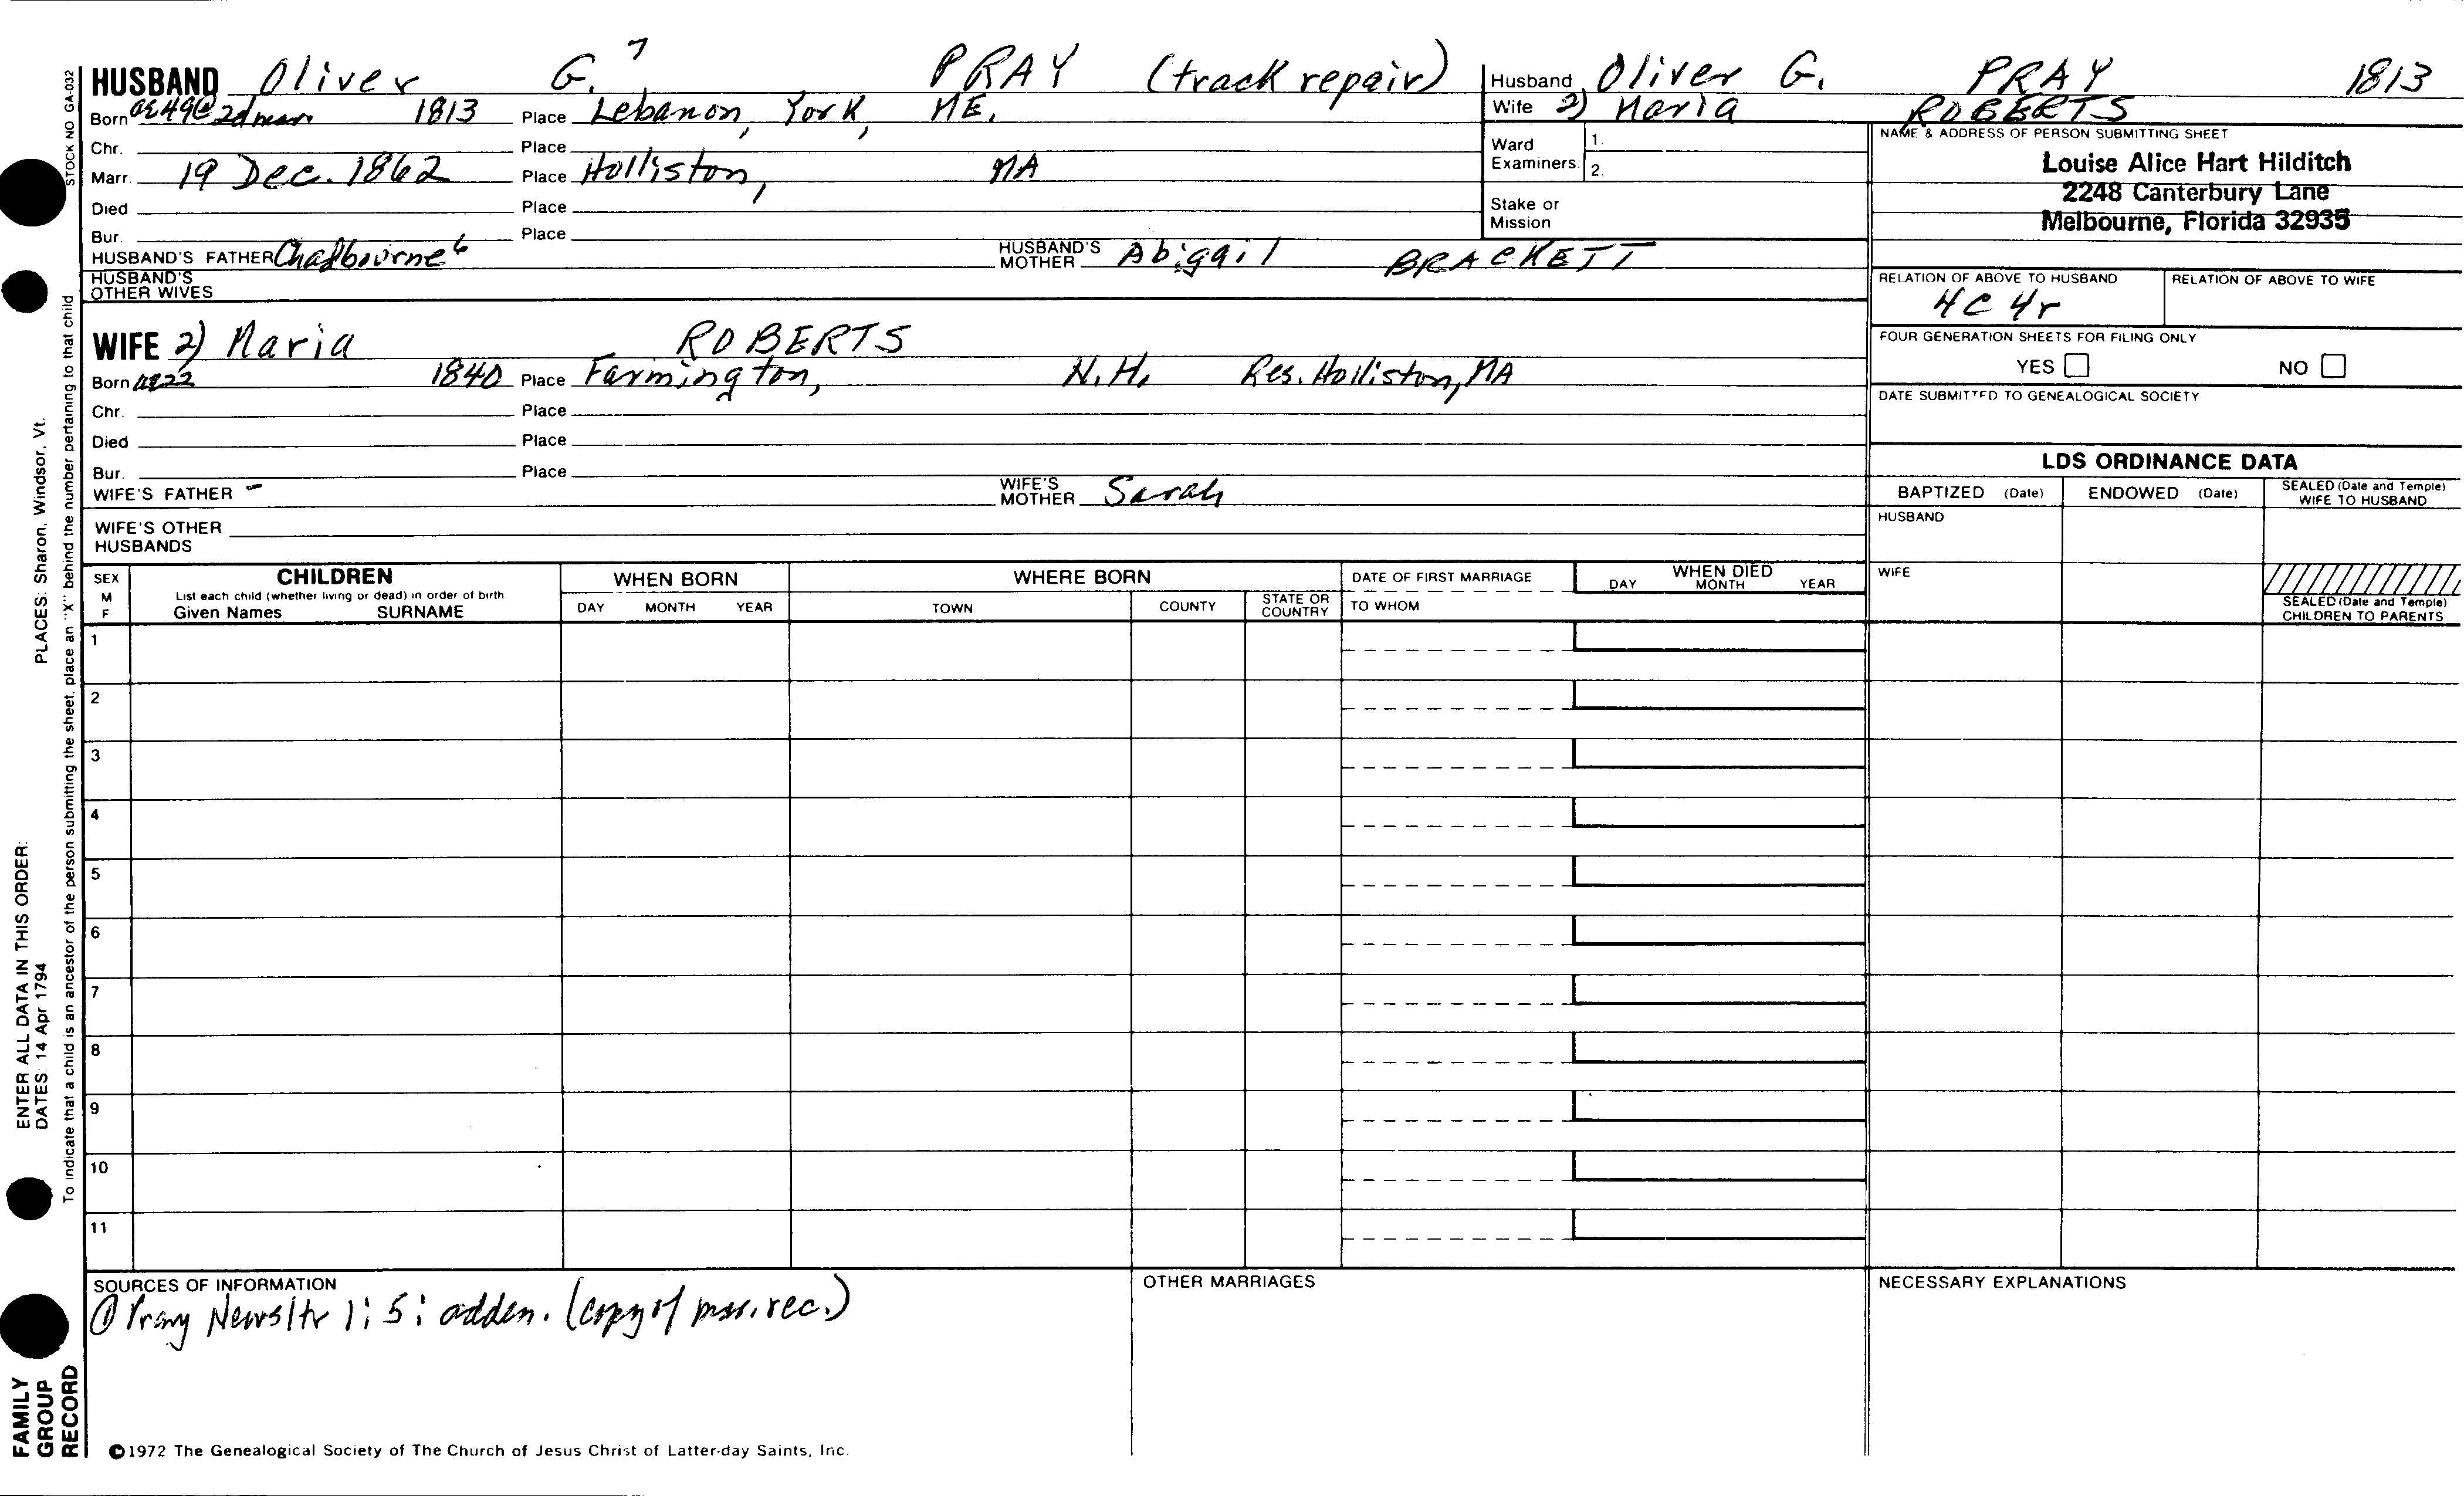 HUSBAND Oliver G.⁷ PRAY (track repair)
Born ae 49@2d mar. 1813 Place Lebanon, York, ME.
Chr. Place
Marr. 19 Dec. 1862 Place Holliston, MA
Died Place
Bur. Place
HUSBAND'S FATHER Chadbourne⁶ HUSBAND'S MOTHER Abigail BRACKETT
HUSBAND'S
OTHER WIVES
WIFE 2) Maria ROBERTS
Born ae 22 1840 Place Farmington, N.H. Res. Holliston, MA
Chr. Place
Died Place
Bur. Place
WIFE'S FATHER - WIFE'S MOTHER Sarah
WIFE'S OTHER
HUSBANDS
Husband Oliver G. PRAY 1813
Wife 2) Maria ROBERTS
Ward
Examiners: 1.
2.
Stake or
Mission
NAME & ADDRESS OF PERSON SUBMITTING SHEET
Louise Alice Hart Hilditch
2248 Canterbury Lane
Melbourne, Florida 32935
RELATION OF ABOVE TO HUSBAND RELATION OF ABOVE TO WIFE
4C 4r
FOUR GENERATION SHEETS FOR FILING ONLY
YES NO
DATE SUBMITTED TO GENEALOGICAL SOCIETY
LDS ORDINANCE DATA
BAPTIZED (Date) ENDOWED (Date) SEALED (Date and Temple)
WIFE TO HUSBAND
HUSBAND
WIFE
SEALED (Date and Temple)
CHILDREN TO PARENTS
SEX
M
F
CHILDREN
List each child (whether living or dead) in order of birth
Given Names SURNAME
WHEN BORN
DAY MONTH YEAR
WHERE BORN
TOWN COUNTY STATE OR COUNTRY
DATE OF FIRST MARRIAGE
TO WHOM
WHEN DIED
DAY MONTH YEAR
1
2
3
4
5
6
7
8
9
10
11
SOURCES OF INFORMATION
① Pray Newsltr 1:5: adden. (copy of mar. rec.)
OTHER MARRIAGES
NECESSARY EXPLANATIONS
©1972 The Genealogical Society of The Church of Jesus Christ of Latter-day Saints, Inc.
STOCK NO GA-032
To indicate that a child is an ancestor of the person submitting the sheet, place an "X" behind the number pertaining to that child.
ENTER ALL DATA IN THIS ORDER:
DATES: 14 Apr 1794 PLACES: Sharon, Windsor, Vt.
FAMILY
GROUP
RECORD